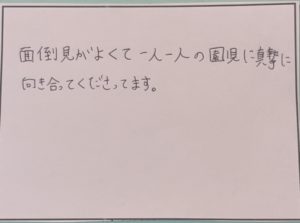 面倒見がよくて一人一人の園児に真摯に
向き合ってくださってます。